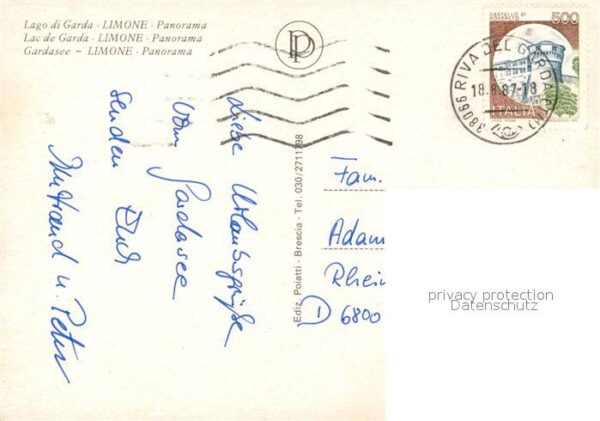 Lago di Garda - LIMONE - Panorama
Lac de Garda - LIMONE - Panorama
Gardasee - LIMONE - Panorama
CASTELLO DI
ROVERETO
500
ITALIA
38066 RIVA DEL GARDA (TN)
18.8.87-18
Liebe Urlaubsgrüße
vom Gardasee
senden Euch
u. Peter
Ediz. Poiatti - Brescia - Tel. 030/2711798
Fam.
Adam
Rhein
D 6800
privacy protection
Datenschutz